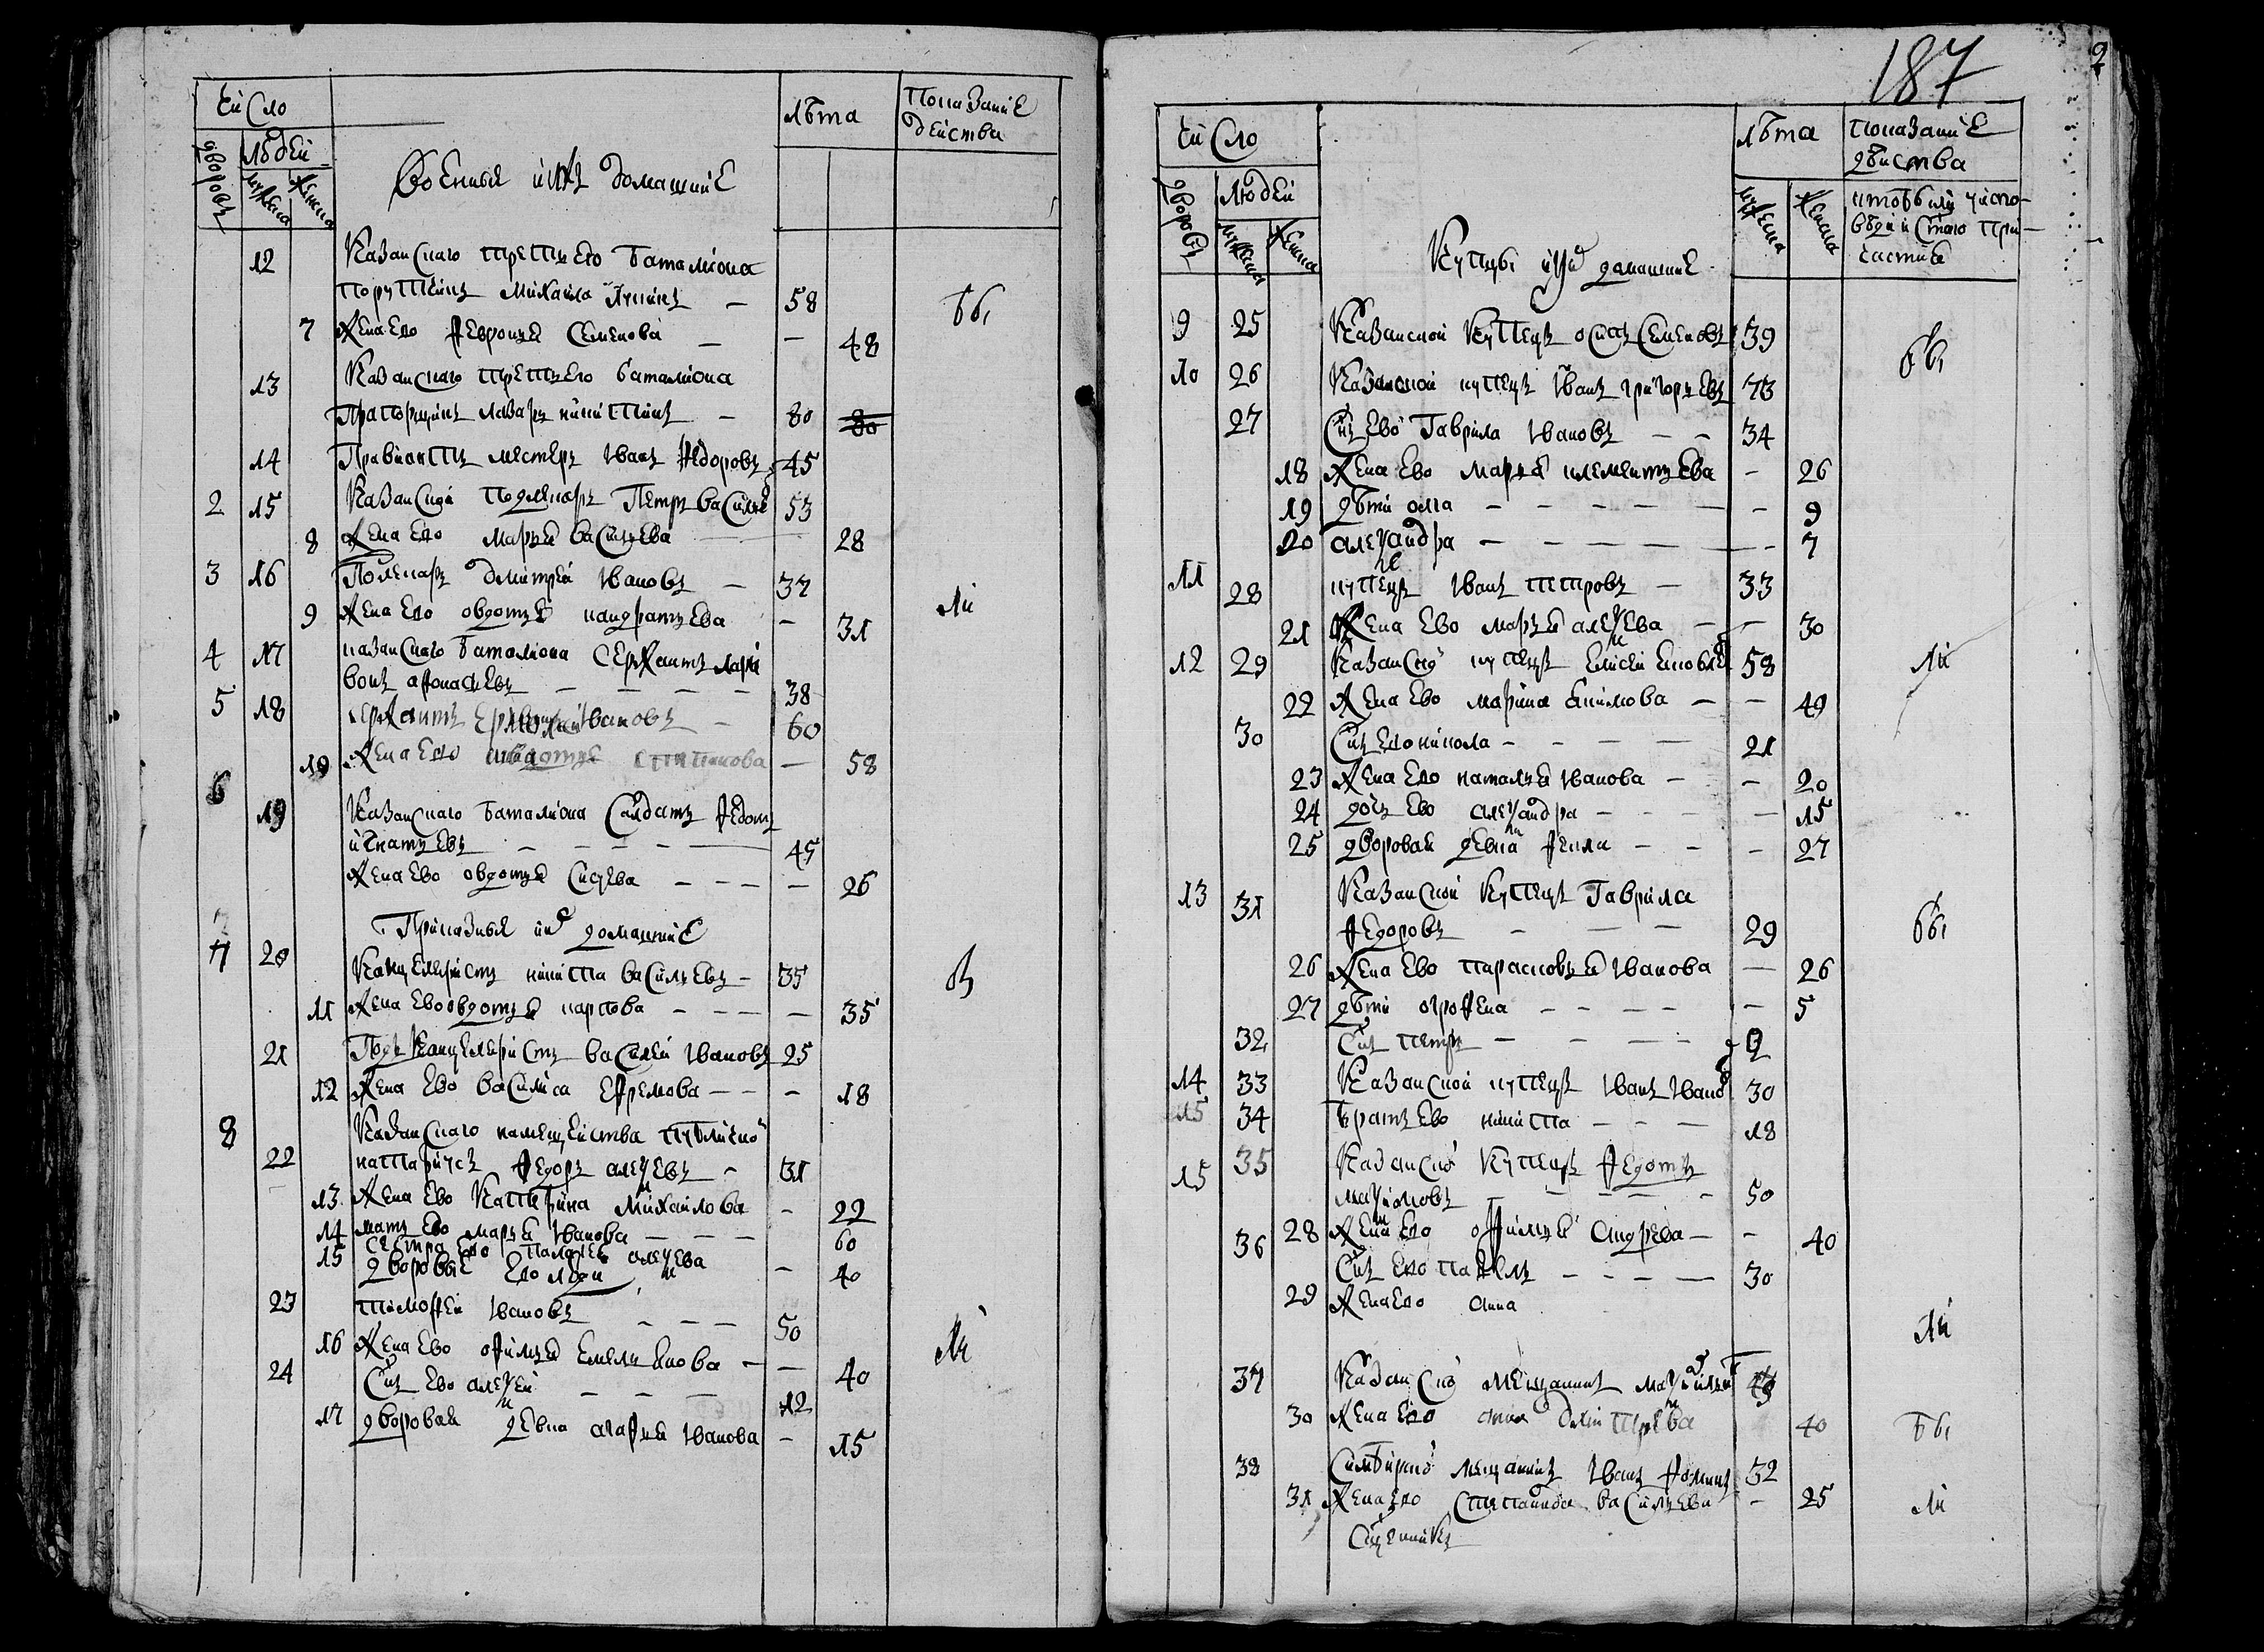 Число
Людей
дворовъ
мужеска
женска
Военныя и ихъ домашние
лѣта
показание
действа
12 Казанскаго третьего баталиона
порутчикъ Михаила — 58
7 жена его Февронья Семенова — — 48
13 Казанскаго третьего баталиона
Прапорщикъ Лазарь Никитинъ — 80 80
14 Правиантъ местеръ Иванъ Федоровъ 45
2 15 Казанской Петръ Василье 53
8 жена его Марья Васильева 28
3 16 Дмитрей Ивановъ — 37
9 жена его Овдотья Кандратьева — 31
4 17 казанскаго баталиона сержантъ Лари
вонъ Афонасьевъ — — — — 38
5 18 сержантъ Ивановъ — 60
10 жена его Степанова — 58
6 19 Казанскаго баталиона салдатъ Федотъ
Игнатьевъ — — — — 45
жена ево Овдотья Сысуева — — — — 26
Приказныя и домашние
7 20 Канцеляристъ Никита Васильевъ — 35
11 жена ево Овдотья Карпова — — — — 35
21 Подъ Канцеляристъ Василей Ивановъ 25
12 жена ево Василиса Ефремова — — — 18
8 Казанскаго намещейства публичной
22 натариусъ Федоръ Алеѯевъ — 31
13 жена ево Катерина Михайлова — 22
14 мать ево Марья Иванова — — — 60
15 сестра его Палагея Алеѯева — 40
дворовые его люди
23 Тимофей Ивановъ — — — 50
16 жена ево Офимья Емельянова — — 40
24 Сынъ ево Алеѯей — — — 12
17 дворовая девка Агафья Иванова — 15
бы
ли
бы
ли
187
Число
дворовъ
Людей
мужеска
женска
Купцы и ихъ домашние
лѣта
мужеска
женска
показание
дѣиства
кто были у испо-
вѣди и стаго при-
частия
9 25 Казанской Купецъ Осипъ Семеновъ 39
10 26 Казанской купецъ Иванъ Григорьевъ 73
27 Сынъ ево Гаврила Ивановъ — — 34
18 жена ево Марья Клементьева — 26
19 дѣти Олга — — — — — — 9
20 Алеѯандра — — — — — — 7
11 28 купецъ Иванъ Петровъ — 33
21 жена ево Марья Алеѯева — — 30
12 29 Казанской купецъ Елисей Яковле 58
22 жена ево Марина Якимова — — 49
30 Сынъ его Никола — — — — 21
23 жена его Наталья Иванова — — 20
24 дочь ево Алеѯандра — — — 15
25 дворовая девка Фекла — — — 27
13 31 Казанской Купецъ Гаврила
Федоровъ — — — 29
26 жена ево Парасковья Иванова — 26
27 дѣти Огрофена — — — — — 5
32 Сынъ Петръ — — — — 2
14 33 Казанской купецъ Иванъ Ивано 30
15 34 братъ ево Никита — — — 18
15 35 Казанской Купецъ Федотъ
Маѯимовъ — — — — 50
28 жена его Офимья Андреева — — 40
36 Сынъ его Павелъ — — — — 30
29 жена его Анна
37 Казанской мещанинъ 43
30 жена его Анна Дмитрева 40
38 Симбирской мещанинъ Иванъ Фоминъ 32
31 жена его Степанида Васильева — 25
Сщенникъ
бы
ли
бы
ли
бы
ли